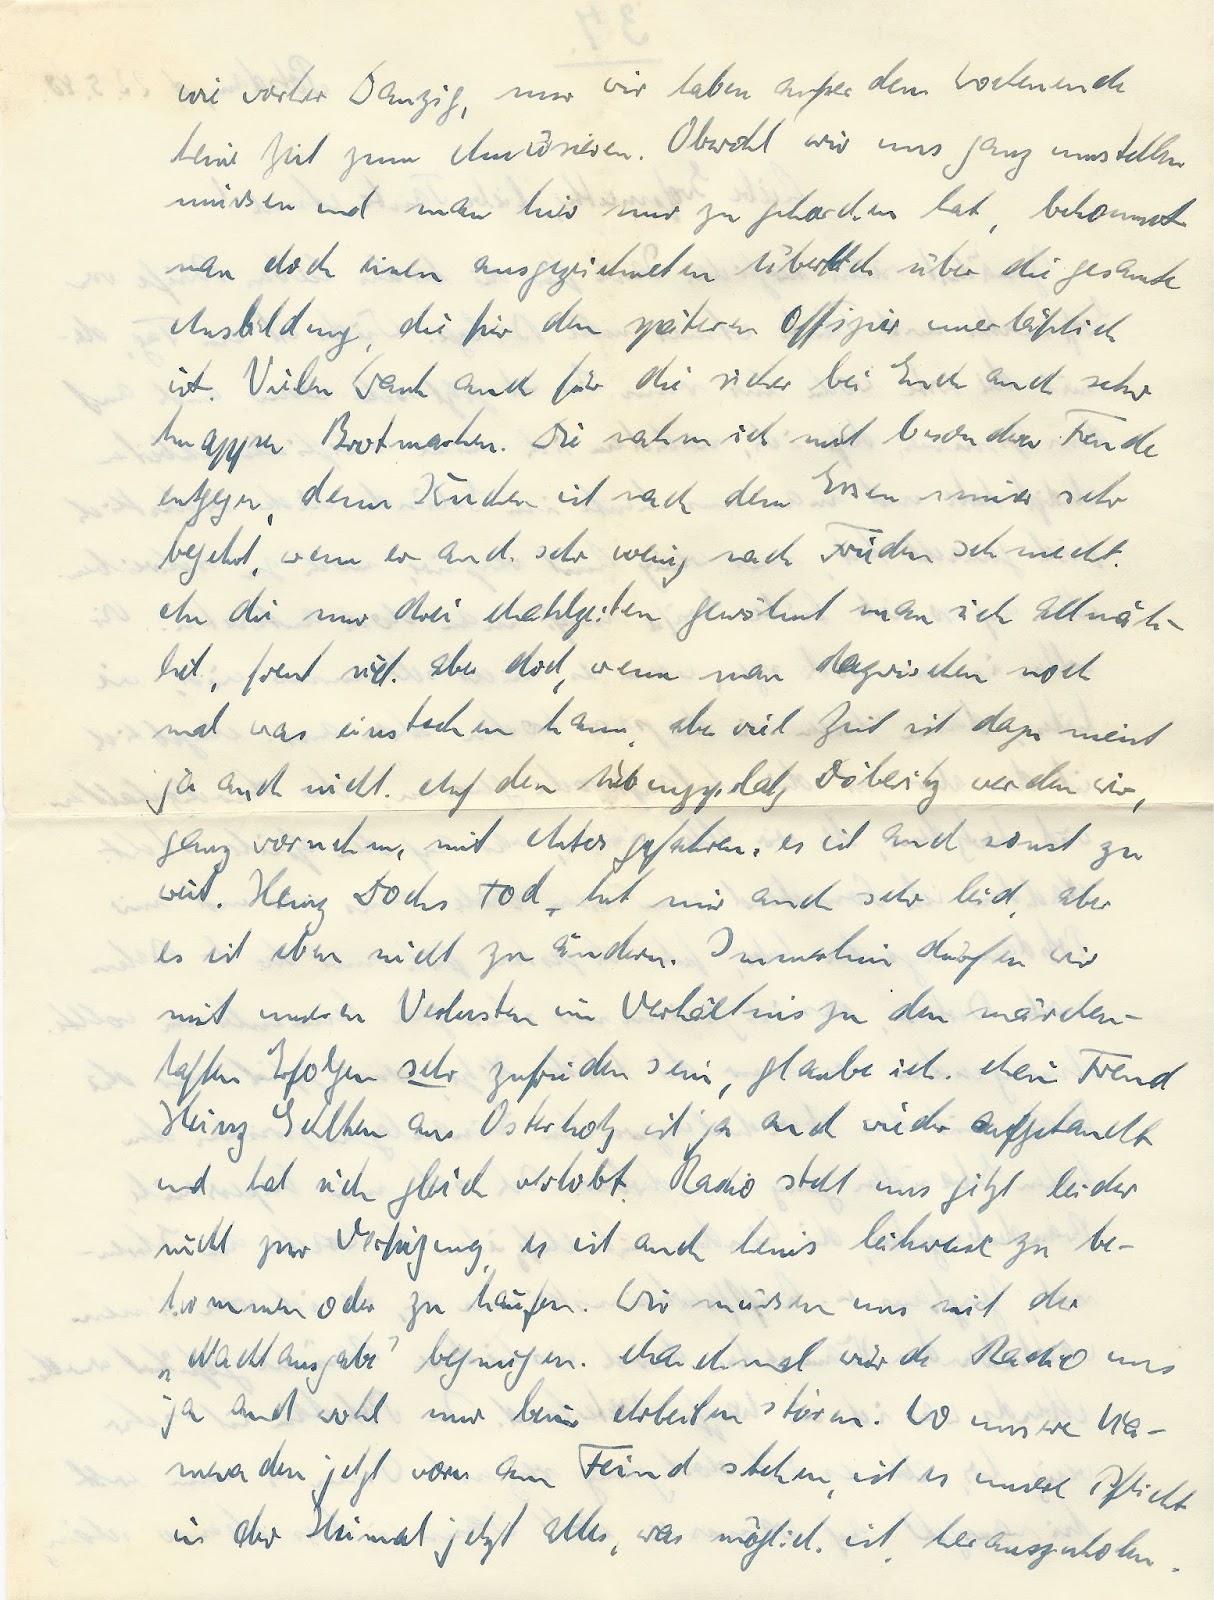 wie vorher Danzig, nur wir haben außer dem Wochenende
keine Zeit zum Amüsieren. Obwohl wir uns ganz umstellen
müssen und man hier nur zu gehorchen hat, bekommt
man doch einen ausgezeichneten Überblick über die gesamte
Ausbildung, die für den späteren Offizier unerläßlich
ist. Vielen Dank auch für die sicher bei Euch auch sehr
knappen Brotmarken. Die nahm ich mit besonderer Freude
entgegen, denn Kuchen ist nach dem Essen immer sehr
begehrt, wenn er auch sehr wenig nach Frieden schmeckt.
An die nur drei Mahlzeiten gewöhnt man sich allmäh-
lich, freut sich aber doch, wenn man dazwischen noch
mal was einstechen kann, aber viel Zeit ist dazu meist
ja auch nicht. Auf den Übungsplatz Döberitz werden wir,
ganz vornehm, mit Autos gefahren, es ist auch sonst zu
weit. Heinz Dochs Tod, tut mir auch sehr leid, aber
es ist eben nicht zu ändern. Immerhin dürfen wir
mit unseren Verlusten im Verhältnis zu den märchen-
haften Erfolgen sehr zufrieden sein, glaube ich. Mein Freund
Heinz aus Osterholz ist ja auch wieder aufgetaucht
und hat sich gleich verlobt. Radio steht uns jetzt leider
nicht zur Verfügung, es ist auch keins leihweise zu be-
kommen oder zu kaufen. Wir müssen uns mit der
„Nachtausgabe" begnügen. Manchmal würde Radio uns
ja auch wohl nur beim Arbeiten stören. Wo unsere Ka-
meraden jetzt vorn am Feind stehen, ist es unsere Pflicht
in der Heimat jetzt alles, was möglich ist, herauszuholen.